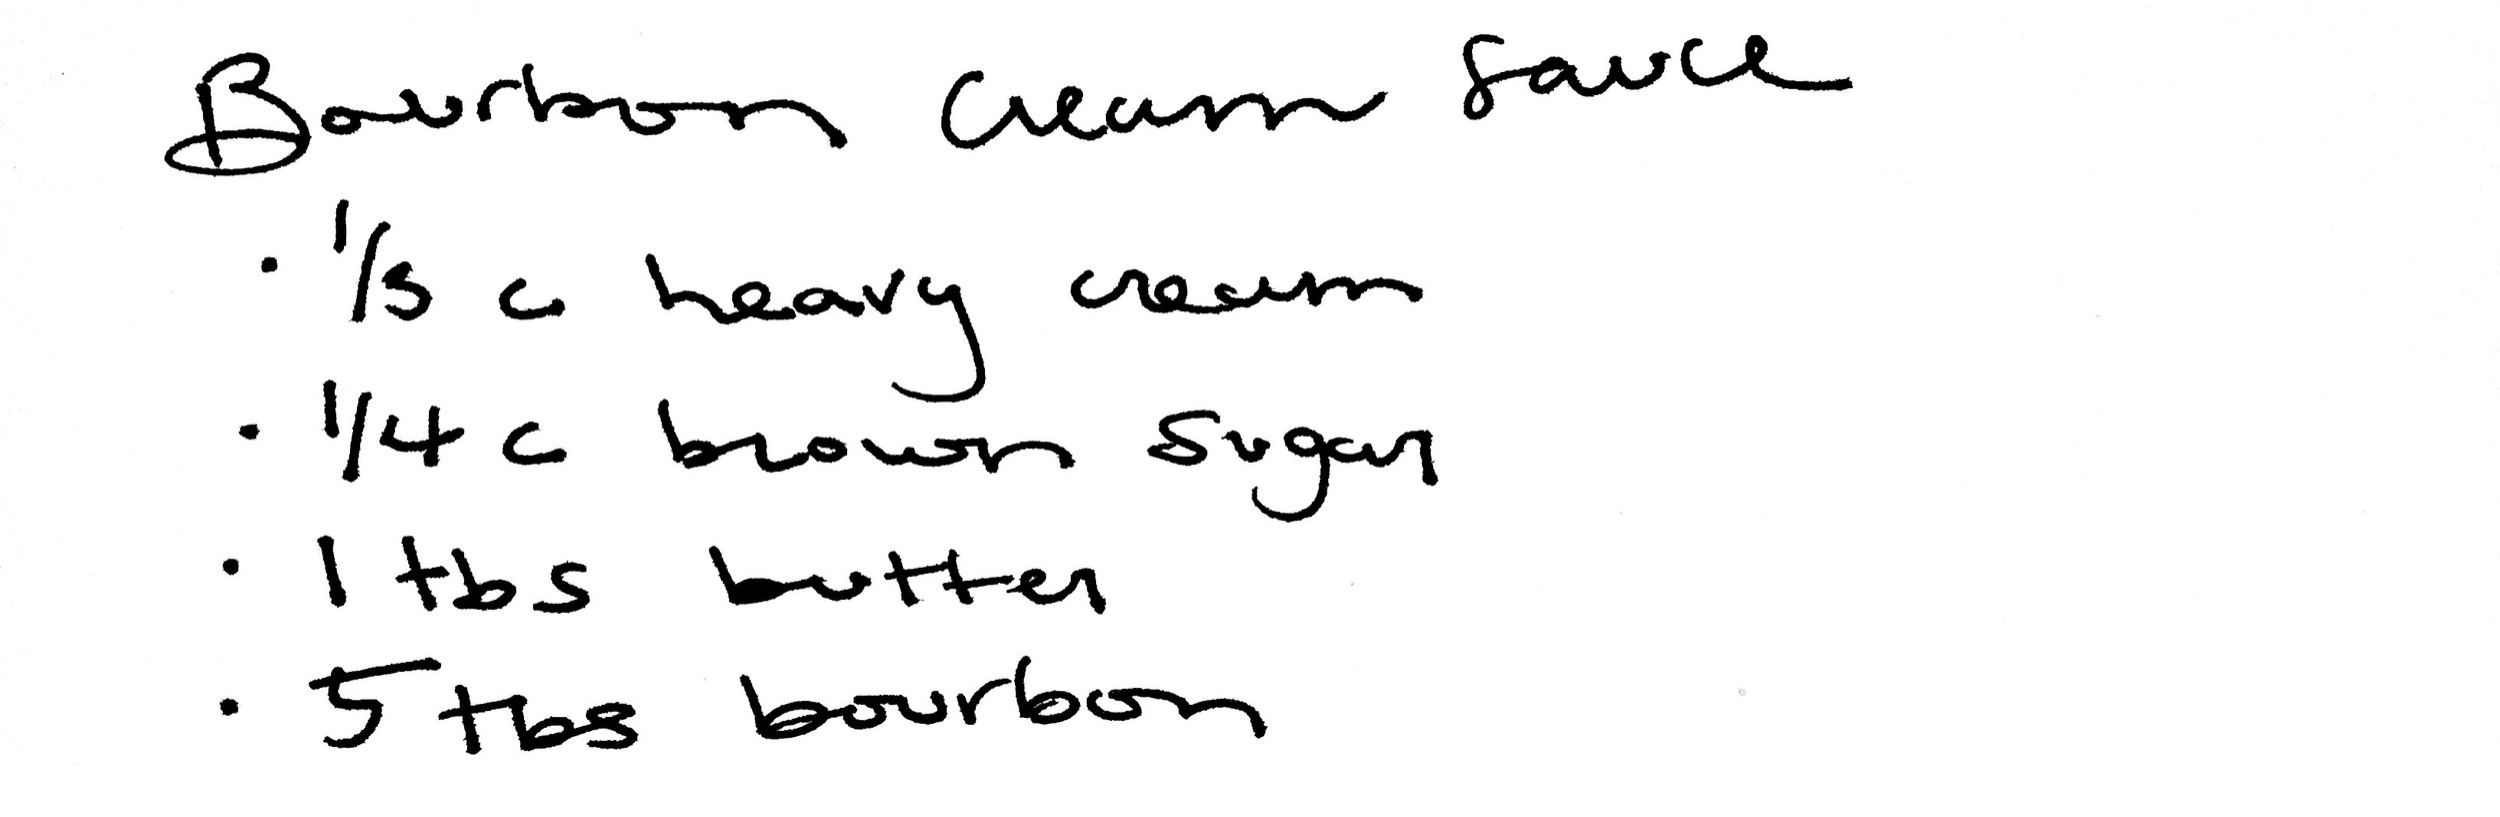 Bourbon Cream sauce
· 1/3 c heavy cream
· 1/4 c brown sugar
· 1 tbs butter
· 5 tbs bourbon